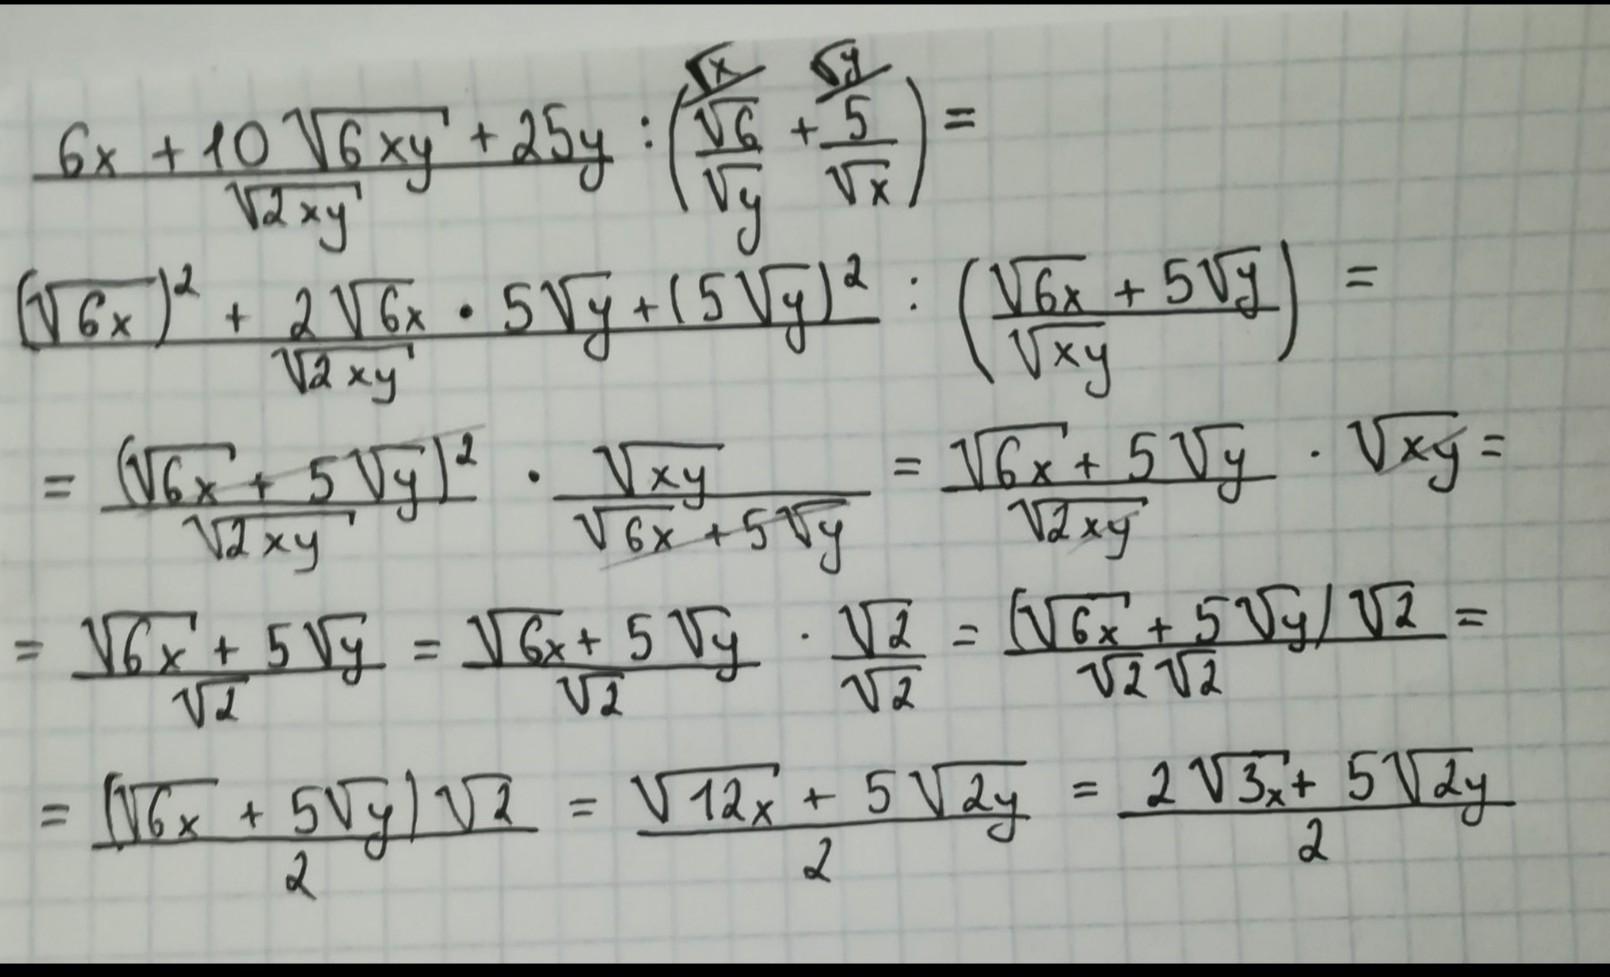 (6x + 10√(6xy) + 25y)/√(2xy) : (√x/ √6/√y + √y/ 5/√x) =
((√(6x))² + 2√(6x) · 5√y + (5√y)²)/√(2xy) : ((√(6x) + 5√y)/√(xy)) =
= (√(6x) + 5√y)²/√(2xy) · √(xy)/(√(6x) + 5√y) = (√(6x) + 5√y)/√(2xy) · √(xy) =
= (√(6x) + 5√y)/√2 = (√(6x) + 5√y)/√2 · √2/√2 = ((√(6x) + 5√y)√2)/(√2√2) =
= ((√(6x) + 5√y)√2)/2 = (√(12x) + 5√(2y))/2 = (2√(3x) + 5√(2y))/2